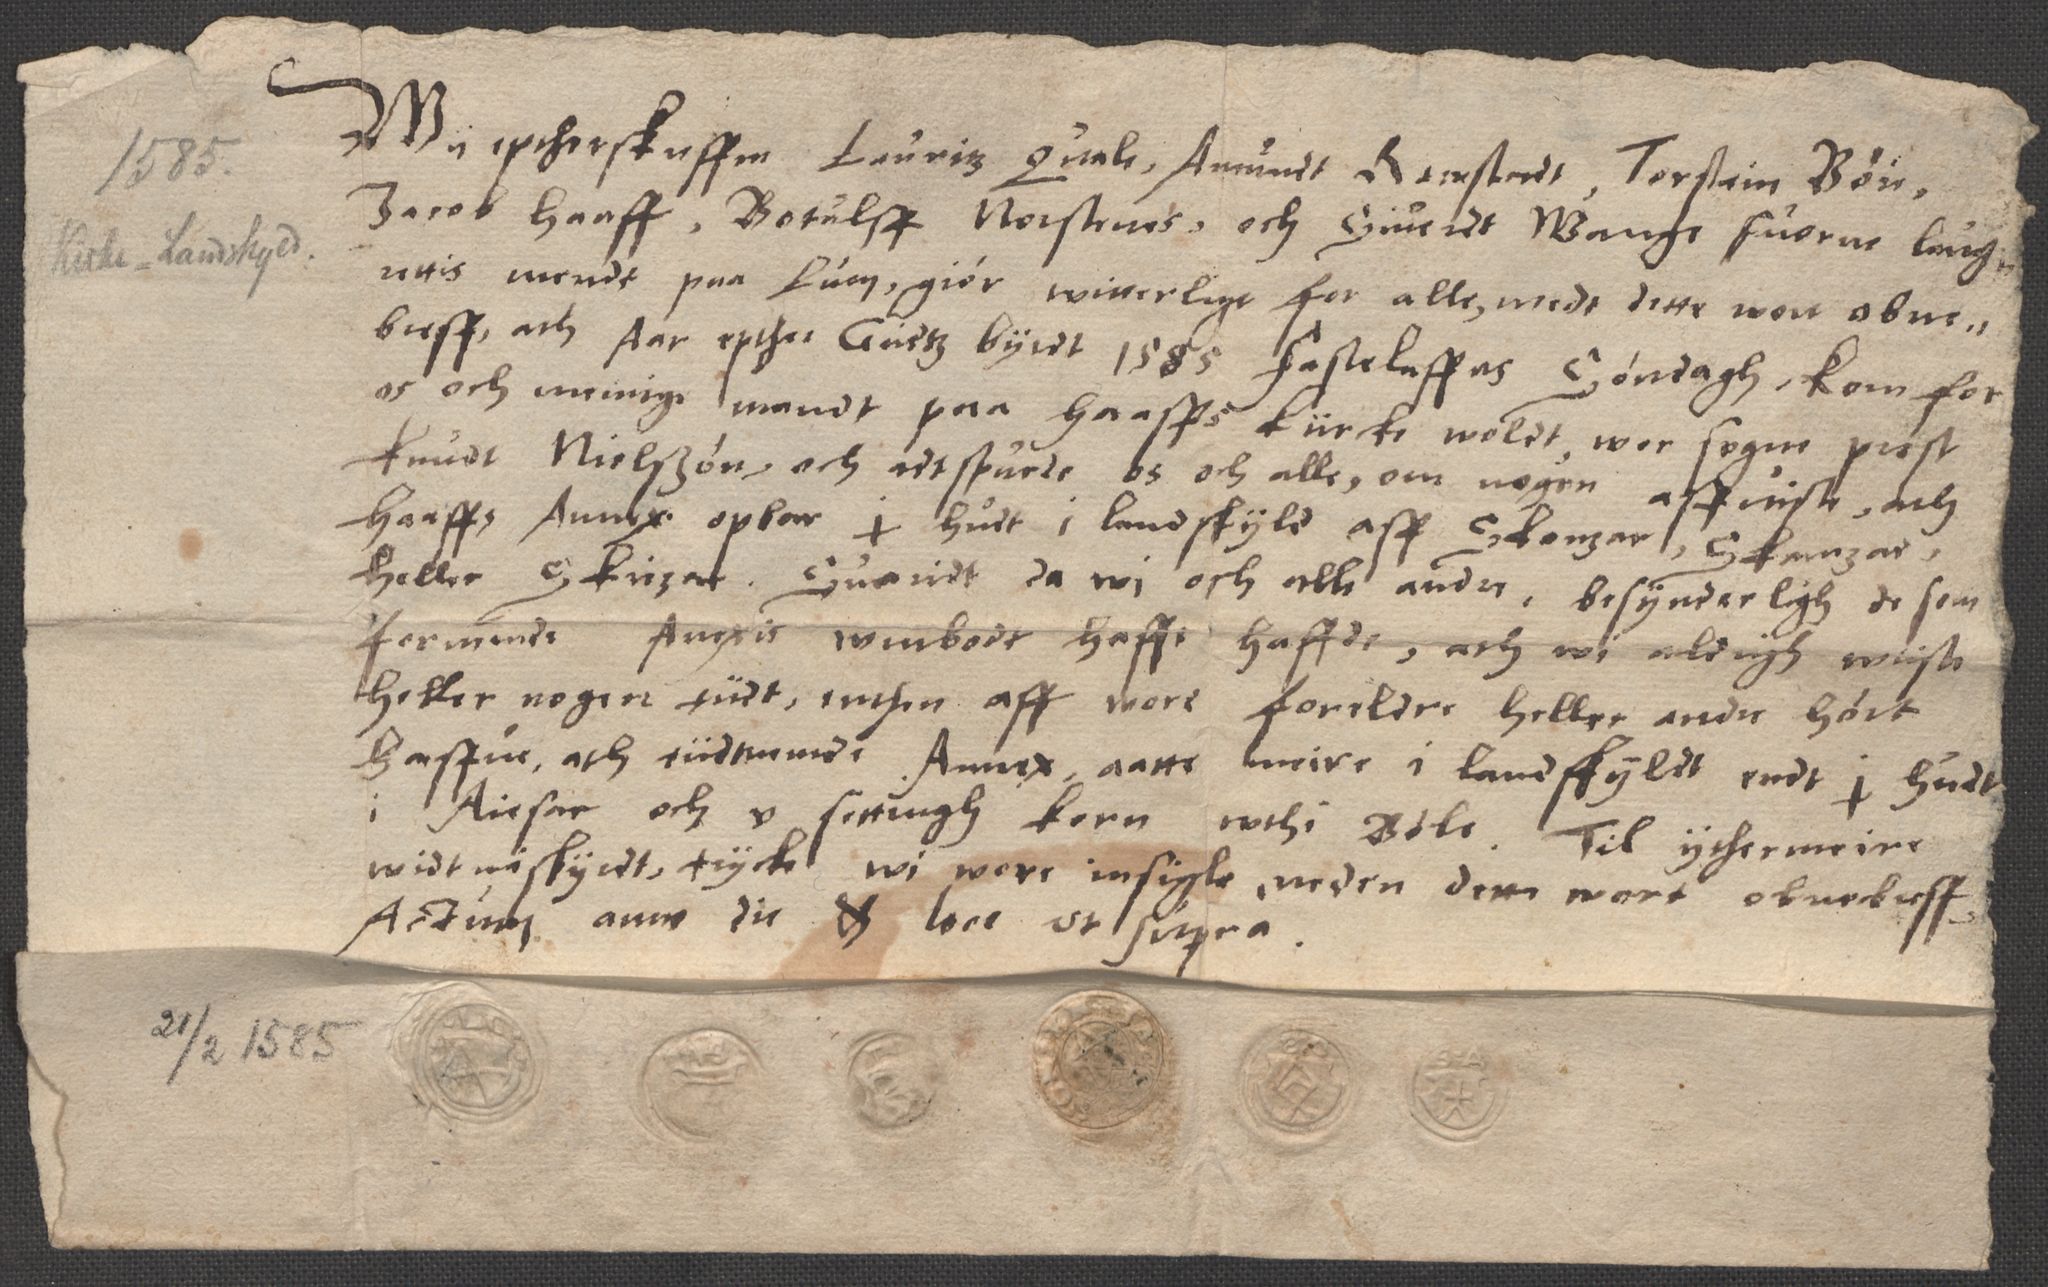 1585.
Kirke-Landskyld.
Wij eptherskreffne Lauritz Quale, Amundt Rumstadt, Torstein Böij,
Jacob Haaff, Botulff Norstenes, och Siuerdt Wange suorne laug„
rettis mendt paa Lum, giör witterligt for alle, medt dette wort obne„
breff, ath Aar epther Gudtz byrdt 1585 fastelaffns Söndagh, kom for
os och menige mandt paa Haaffs kircke woldt, wor sogne prest
Knudt Nielszön, och adtspurde os och alle, om nogen aff wiste, ath
Haaffs Annex opbar j hudt i landskyld aff Skonzar, Skanzar,
heller Skinzar. Suaridt da wi och alle andre, besynderligh de som
formende Anexis wmbodt hafft haffde, ath wi aldrigh wiste
heller nogen tiidt, enthen aff wore foreldre heller andre hört
haffue, ath tiidtnemde Annex, aatte meire i landskyldt endt j hudt
i Aiesar och v settingh korn wthi Böle. Til ythermeire
widtneskyrdt, trycke wi wore insigle neden dette wort obnebreff.
Actum anno die & loco vt supra.
21/2 1585